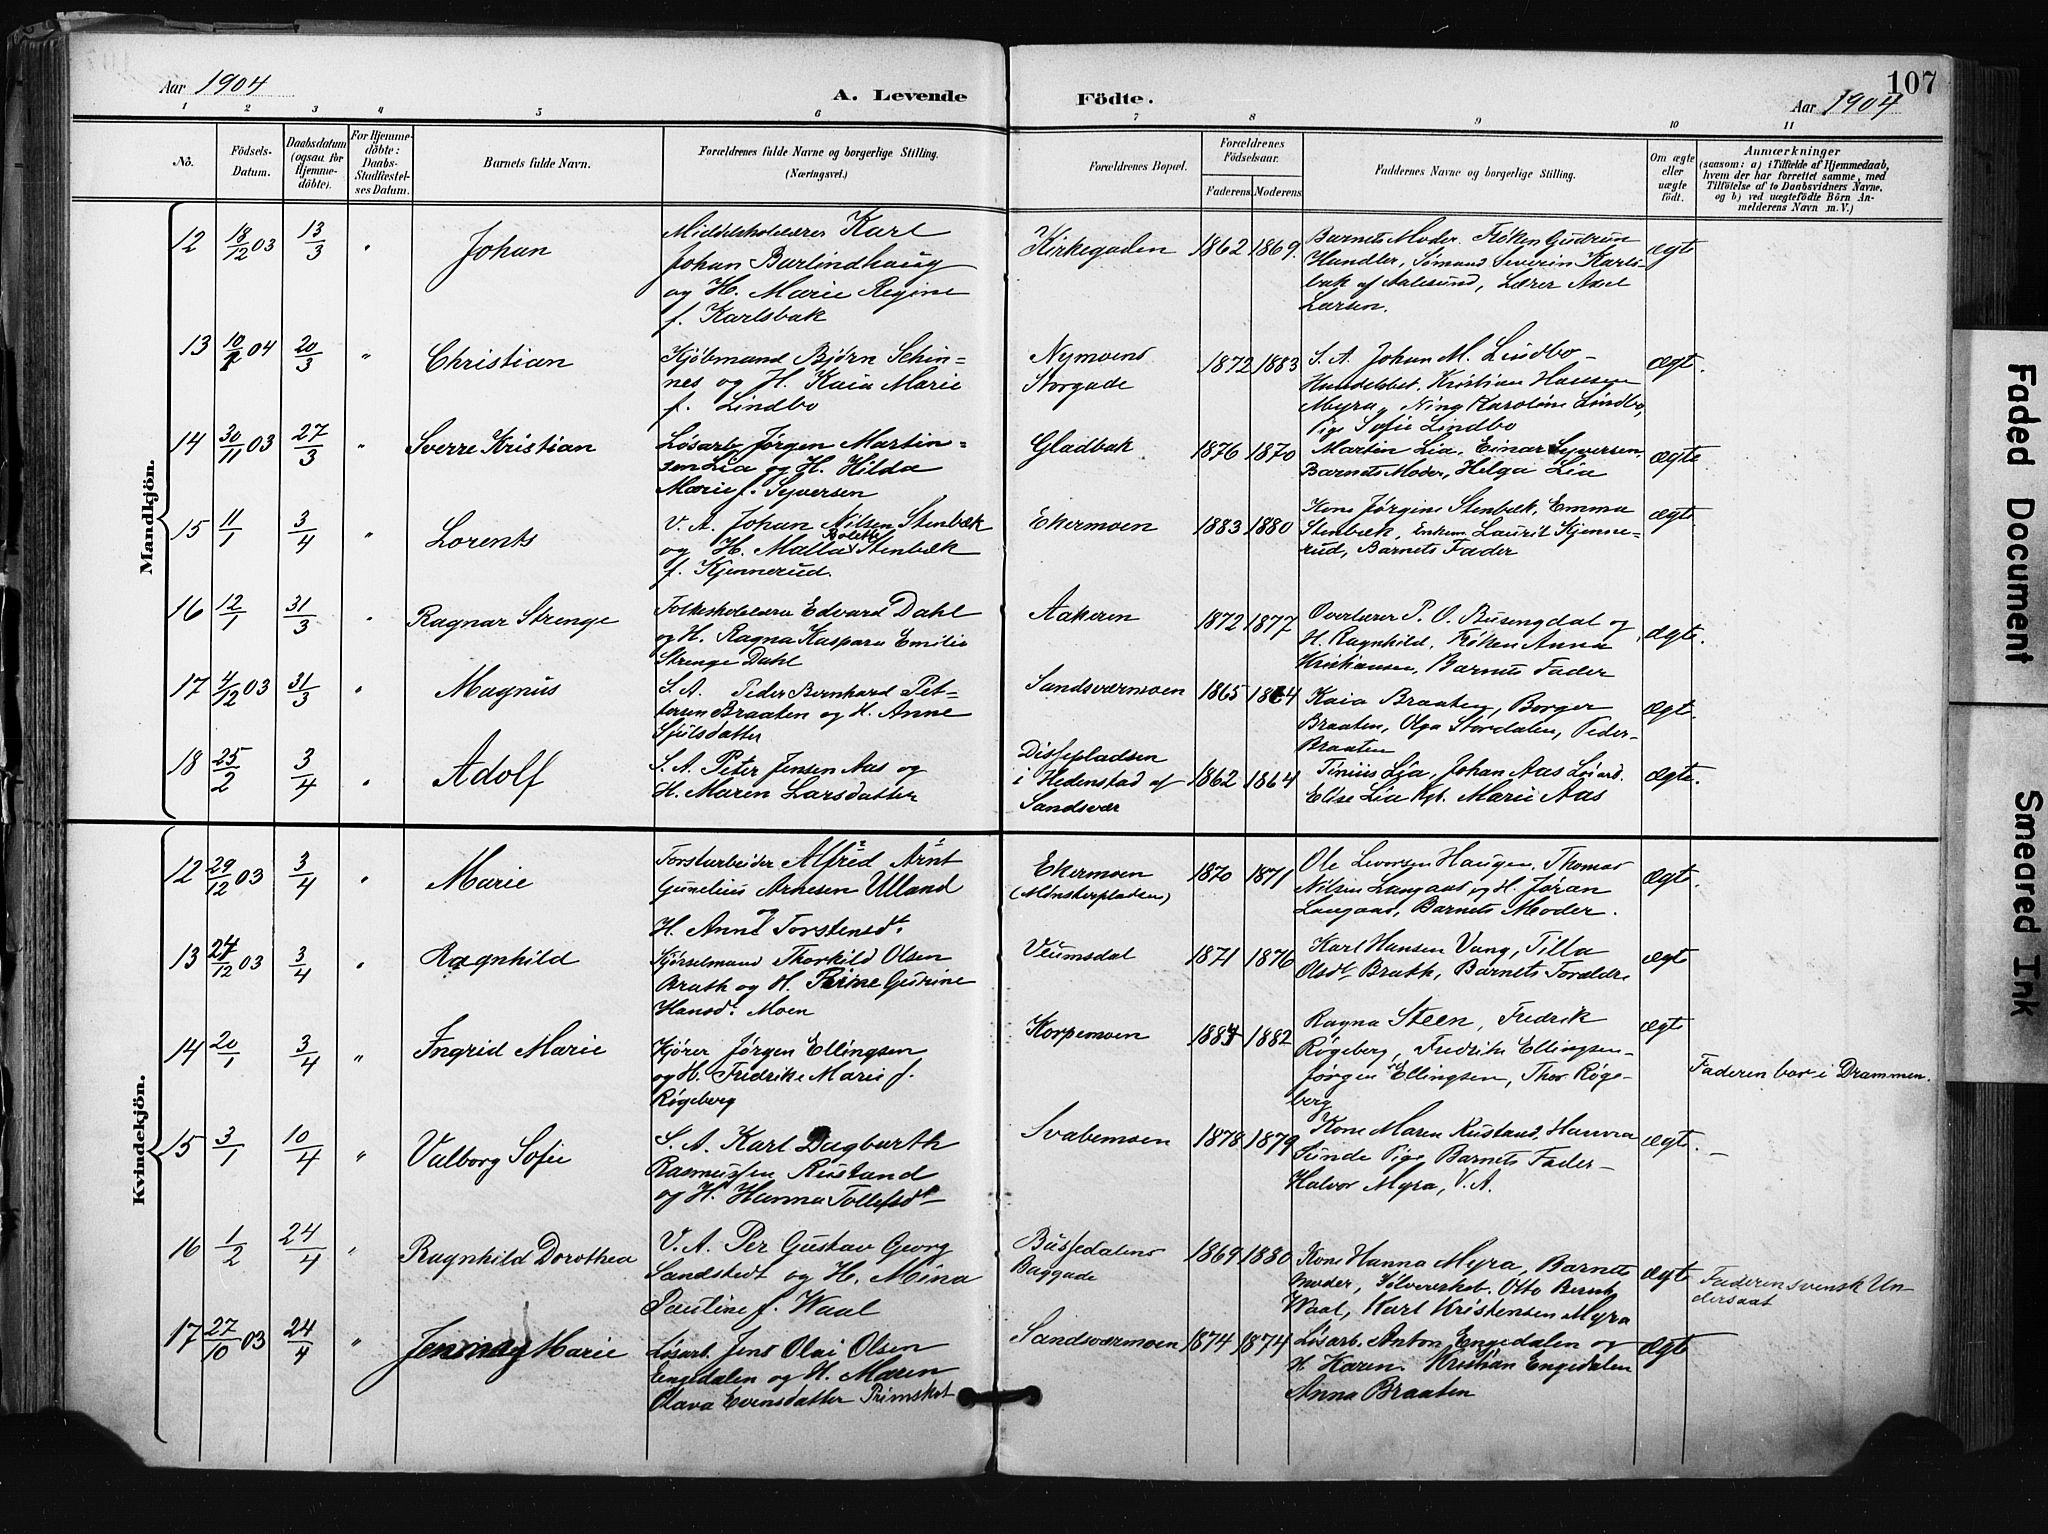 Aar 1904
A. Levende
Födte.
107
Aar 1904
1 2 3 4 5 6 7 8 9 10 11
No.
Födsels-
Datum.
Daabsdatum
(ogsaa for
Hjemme-
döbte).
For Hjemme-
döbte:
Daabs-
Stadfæstel-
ses Datum.
Barnets fulde Navn.
Forældrenes fulde Navne og borgerlige Stilling.
(Næringsvei.)
Forældrenes Bopæl.
Forældrenes
Födselsaar.
Faderens. Moderens.
Faddernes Navne og borgerlige Stilling.
Om ægte
eller
uægte
födt.
Anmærkninger
(saasom: a) i Tilfælde af Hjemmedaab,
hvem der har forrettet samme, med
Tilföielse af to Daabsvidners Navne.
og b) ved uægtefödte Börn An-
melderens Navn m. V.)
Mandkjön.
12 18/12 03 13/3 " Johan
Middelskolelærer Karl
Johan Burlindhaug
og H. Marie Regine
f. Karlsbak
Kirkegaden 1862 1869.
Barnets Moder. Frøken Gudrun
Handler, Sømand Severin Karls-
bak af Aalesund, Lærer Axel
Larsen.
ægt
13 10/1 04 20/3 " Christian
Kjøbmand Bjørn Schin-
nes og H. Kaia Marie
f. Lindbo
Nymoens
Storgade
1872 1883
S. A. Johan M. Lindbo-
Handelsbet. Kristian Hansen
Myra, Nina Karoline Lindbo,
Pige Sofie Lindbo
ægt.
14 30/11 03 27/3 " Sverre Kristian
Løsarb. Jørgen Martin-
sen Lia og H. Hilda
Marie f. Syversen
Gladbak 1876 1870
Martin Lia, Einar Syversen,
Barnets Moder, Helga Lia
ægte
15 11/1 3/4 " Lorents
V. A. Johan Nilsen Stenbæk
Bolette
og H. Malla Stenbæk
f. Kjennerud.
Ekermoen 1883 1880
Kone Jørgine Stenbæk, Emma
Stenbæk, Enkem. Laurits Kjenne-
rud, Barnets Fader
ægt.
16 12/1 31/3 " Ragnar Strenge
Folkeskolelærer Edvard Dahl
og H. Ragna Kaspara Emilie
Strenge Dahl
Aakeren 1872 1877
Overlærer P. O. Busengdal og
H. Ragnhild, Frøken Anna
Kristiansen, Barnets Fader
ægte.
17 4/12 03 31/3 " Magnus
S. A. Peder Bernhard Pet-
tersen Braaten og H. Anne
Sjulsdatter
Sandsværmoen 1865 1864
Kaia Braaten, Borger
Braaten, Olga Stordalen, Peder
Braaten
ægt.
18 25/2 3/4 " Adolf
S. A. Peter Jensen Aas og
H. Maren Larsdatter
Dissepladsen
i Hedenstad af
Sandsvær
1862 1864
Tinius Lia, Johan Aas Løsarb.
Elise Lia Kgb. Marie Aas
ægte.
Kvindekjön.
12 29/12 03 3/4 " Marie
Torstarbeider Alfred Arnt
Gunelius Arnesen Ulland
og
H. Anne Torstensdt.
Ekermoen
(Mønsterpladsen)
1870 1871
Ole Levorsen Haugen, Thomas
Nilsen Langaas og H. Jøran
Langaas, Barnets Moder.
ægt.
13 24/12 03 3/4 " Ragnhild
Kjørselmand Thorkild Olsen
Brath og H. Pirine Gurine
Hansd. Moen
Veumsdal 1871 1876
Karl Hansen Vang, Tilla
Olsdt. Brath, Barnets Forældre
ægt
14 20/1 3/4 " Ingrid Marie
Kjører Jørgen Ellingsen
og H. Fredrikke Marie f.
Røgeberg
Korpemoen 1884 1882
Ragna Steen, Fredrik
Røgeberg, Fredrik Ellingsen
Jørgen Ellingsen, Thor Røge-
berg
ægt
Faderen bor i Drammen.
15 3/1 10/4 " Valborg Sofie
S. A. Karl Dagbarth
Rasmussen Rustand
og H. Hanna Tollefsdt
Svabemoen 1878 1879
Kone Maren Rustand, Hanna
Sunde Pige Barnets Fader-
Halvor Myra, V. A.
ægt.
16 1/2 24/4 " Ragnhild Dorothea
V. A. Per Gustav Georg
Sandstedt og H. Mina
Pauline f. Waal
Bussedalens
Baggade
1869 1880
Kone Hanna Myra, Barnets
Moder, Sølverarb. Otto Bernh.
Waal, Karl Kristensen Myra
ægt
Faderen svensk Un
dersaat
17 27/10 03 24/4 " Jenny Marie
Løsarb. Jens Olai Olsen
Engedalen og H. Maren
Olava Evensdatter Primskot
Sandsværmoen 1874 1874
Løsarb. Anton Engedalen og
H. Karen. Kristian Engedalen
Anna Braaten
ægt
Faded Document
Smeared Ink